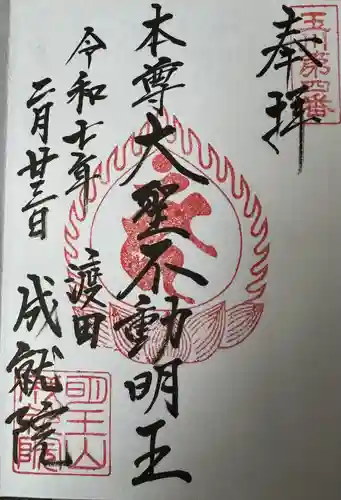 奉拝
玉川第四番
本尊大聖不動明王
令和七年
二月廿三日
渡田
成就院
明王山
成就院